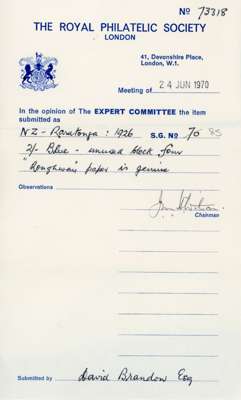 No 73318
THE ROYAL PHILATELIC SOCIETY
LONDON
41, Devonshire Place,
London, W.1.
Meeting of 24 JUN 1970
In the opinion of The EXPERT COMMITTEE the item
submitted as
NZ - Rarotonga : 1926 S.G. No 70 85
2/- Blue - unused block four
"Roughway" paper is genuine
Observations
Chairman
Submitted by David Brandon Esq